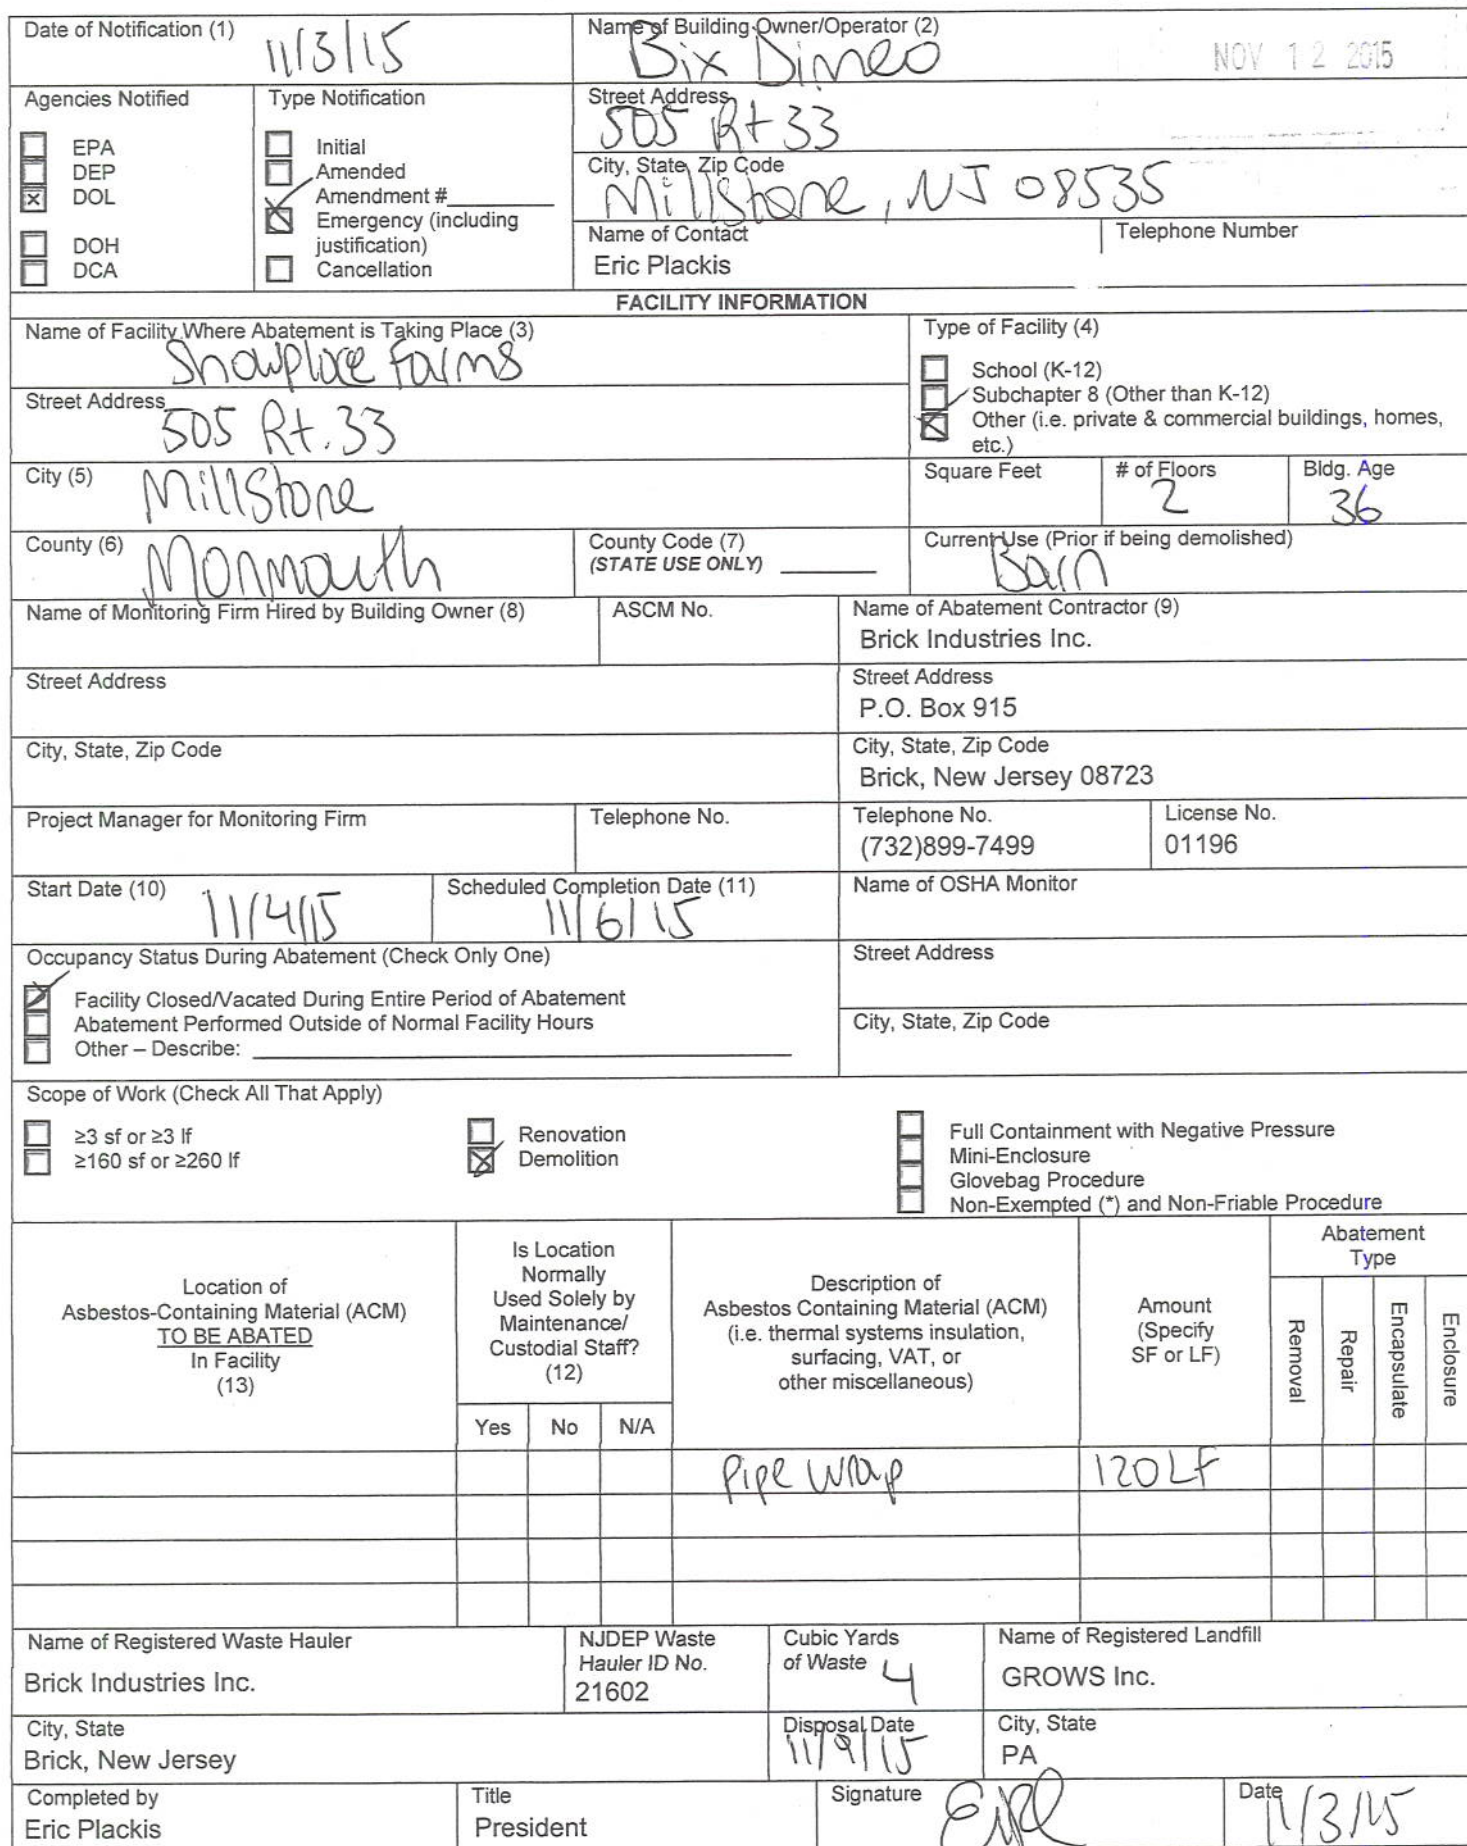 Date of Notification (1)
11/3/15
Name of Building Owner/Operator (2)
Bix Dimeo
NOV 12 2015
Agencies Notified
EPA
DEP
DOL
DOH
DCA
Type Notification
Initial
Amended
Amendment #
Emergency (including
justification)
Cancellation
Street Address
505 Rt 33
City, State, Zip Code
Millstone, NJ 08535
Name of Contact
Eric Plackis
Telephone Number
FACILITY INFORMATION
Name of Facility Where Abatement is Taking Place (3)
Showplace Farms
Type of Facility (4)
School (K-12)
Subchapter 8 (Other than K-12)
Other (i.e. private & commercial buildings, homes,
etc.)
Street Address
505 Rt. 33
City (5)
Millstone
Square Feet
# of Floors
2
Bldg. Age
36
County (6)
Monmouth
County Code (7)
(STATE USE ONLY)
Current Use (Prior if being demolished)
Barn
Name of Monitoring Firm Hired by Building Owner (8)
ASCM No.
Name of Abatement Contractor (9)
Brick Industries Inc.
Street Address
Street Address
P.O. Box 915
City, State, Zip Code
City, State, Zip Code
Brick, New Jersey 08723
Project Manager for Monitoring Firm
Telephone No.
Telephone No.
(732)899-7499
License No.
01196
Start Date (10)
11/4/15
Scheduled Completion Date (11)
11/6/15
Name of OSHA Monitor
Occupancy Status During Abatement (Check Only One)
Facility Closed/Vacated During Entire Period of Abatement
Abatement Performed Outside of Normal Facility Hours
Other – Describe:
Street Address
City, State, Zip Code
Scope of Work (Check All That Apply)
≥3 sf or ≥3 lf
≥160 sf or ≥260 lf
Renovation
Demolition
Full Containment with Negative Pressure
Mini-Enclosure
Glovebag Procedure
Non-Exempted (*) and Non-Friable Procedure
Location of
Asbestos-Containing Material (ACM)
TO BE ABATED
In Facility
(13)
Is Location
Normally
Used Solely by
Maintenance/
Custodial Staff?
(12)
Yes No N/A
Description of
Asbestos Containing Material (ACM)
(i.e. thermal systems insulation,
surfacing, VAT, or
other miscellaneous)
Amount
(Specify
SF or LF)
Abatement
Type
Removal
Repair
Encapsulate
Enclosure
Pipe Wrap
120 LF
Name of Registered Waste Hauler
Brick Industries Inc.
NJDEP Waste
Hauler ID No.
21602
Cubic Yards
of Waste
4
Name of Registered Landfill
GROWS Inc.
City, State
Brick, New Jersey
Disposal Date
11/9/15
City, State
PA
Completed by
Eric Plackis
Title
President
Signature
Date
11/3/15